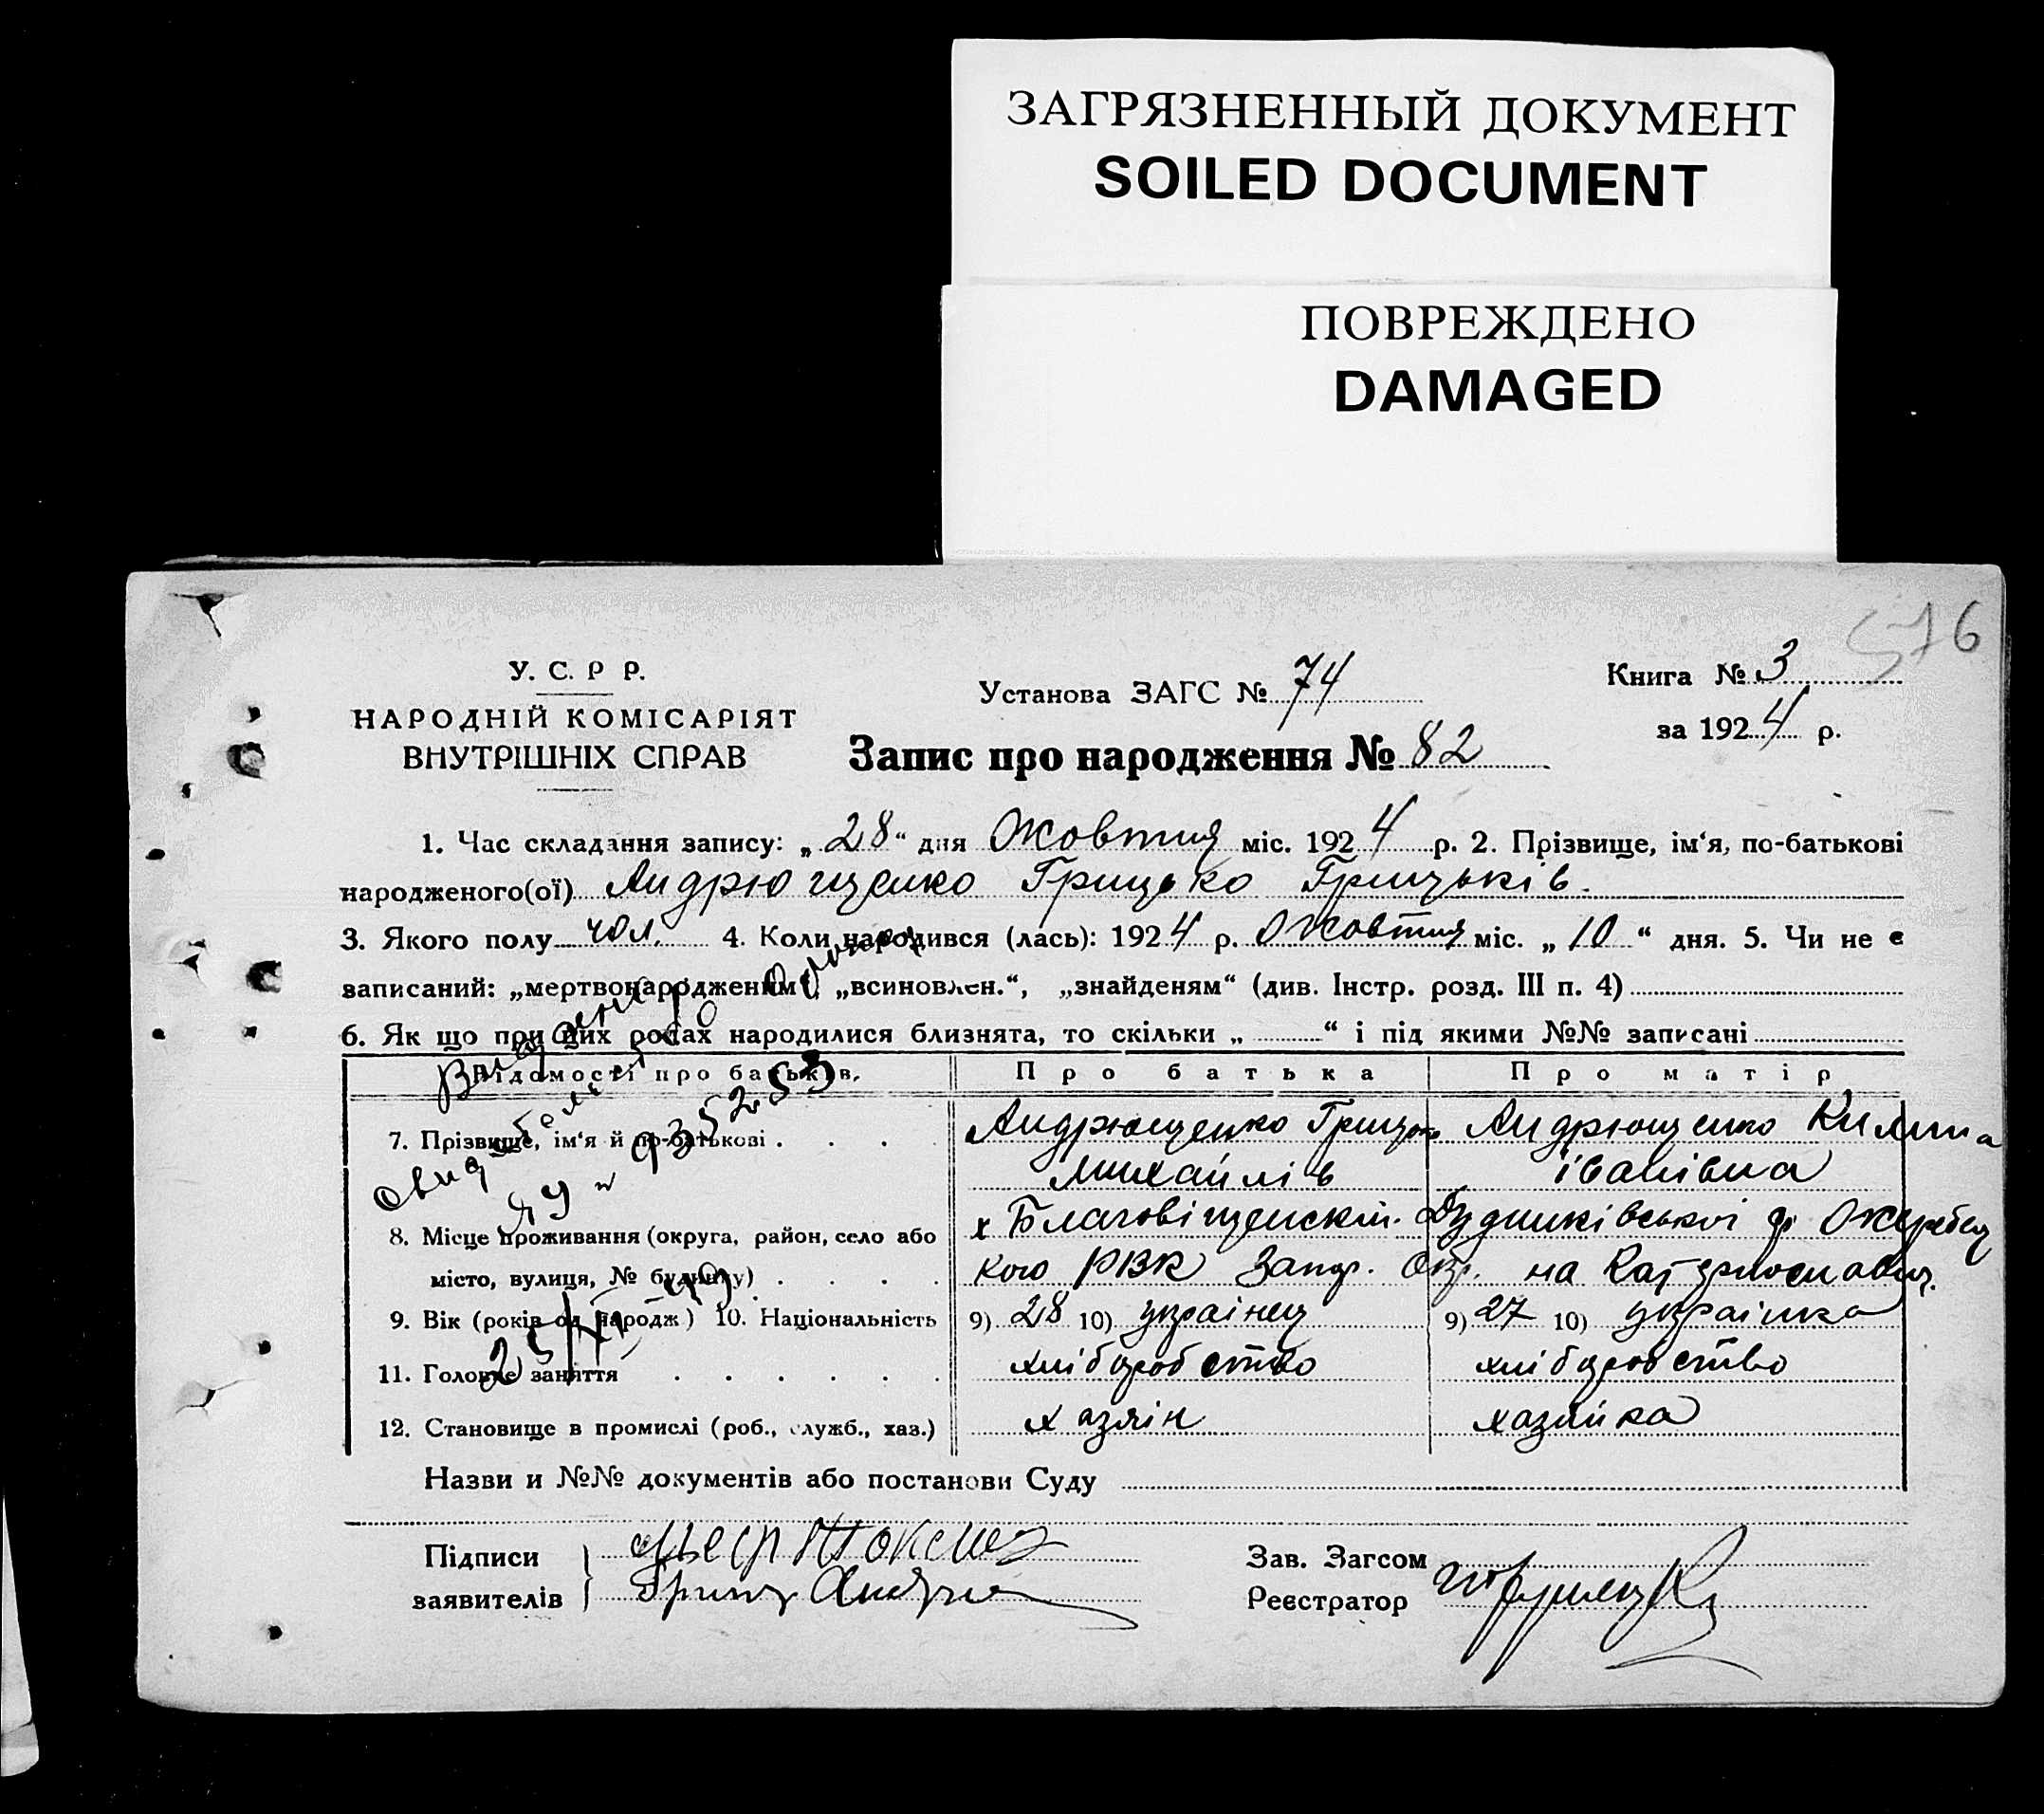 ЗАГРЯЗНЕННЫЙ ДОКУМЕНТ
SOILED DOCUMENT
ПОВРЕЖДЕНО
DAMAGED
576
У. С. Р Р.
НАРОДНІЙ КОМІСАРІЯТ
ВНУТРІШНІХ СПРАВ
Установа ЗАГС № 74
Книга № 3
за 1924 р.
Запис про народження № 82
1. Час складання запису: „28“ дня Жовтня міс. 1924 р. 2. Прізвище, ім‘я, по-батькові
народженого(ої) Андрющенко Грицько Грицьків.
3. Якого полу чол. 4. Коли народився (лась): 1924 р. Жовтня міс. „10“ дня. 5. Чи не є
записаний: „мертвонародженим“, „всиновлен.“, „знайденям“ (див. Інстр. розд. III п. 4)
6. Як що при цих родах народилися близнята, то скільки „ “ і під якими №№ записані
Відомості про батьків. Про батька Про матір
7. Прізвище, ім‘я й по-батькові . . . Андрющенко Грицько Андрющенко Килина
Михайлів Іванівна
8. Місце проживання (округа, район, село або х Благовіщенскій.
місто, вулиця, № будинку) . . . . кого РВК Запор. Окр. на Катеринославщ.
9. Вік (років од народж) 10. Національність 9) 28 10) українец 9) 27 10) українка
11. Головне заняття . . . . . . хліборобство хліборобство
12. Становище в промислі (роб., служб., хаз.) хазяін хазяйка
935253
Назви и №№ документів або постанови Суду
Підписи
заявителів
Гриц Андрю
Зав. Загсом
Реєстратор